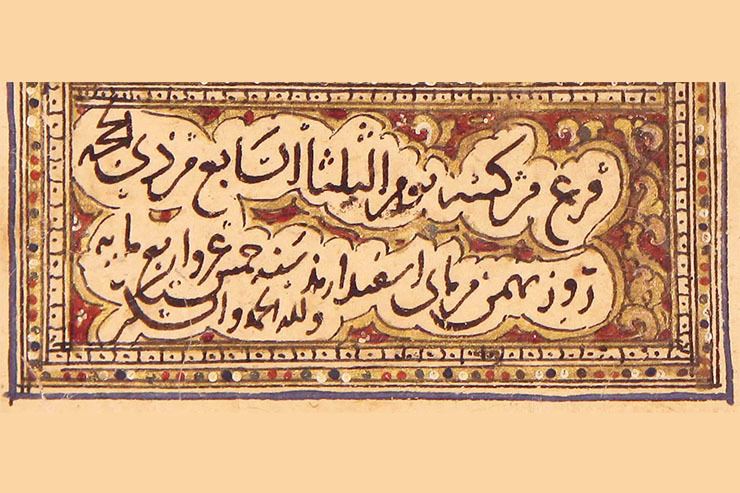 فرغ من كتبته يوم الثلثا السابع من ذي الحجه
روز بهمن من ماه اسفندارمذ سنه خمس عشر واربع مايه
ولله الحمد والشكر